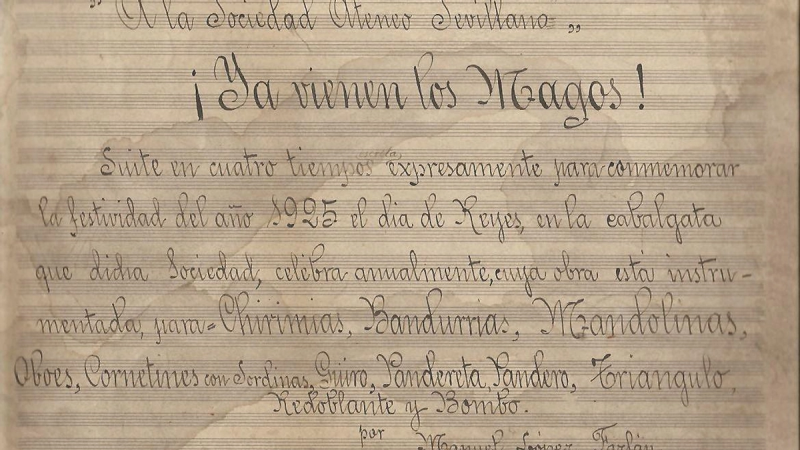 „ A la Sociedad Ateneo Sevillano „
¡Ya vienen los Magos!
Suite en cuatro tiempos expresamente para conmemorar
la festividad del año 1925 el dia de Reyes, en la cabalgata
que dicha Sociedad, celébra anualmente, cuya obra está instru-
mentada, para=Chirimias, Bandurrias, Mandolinas,
Oboes, Cornetines con Sordinas, Guiro, Pandereta, Pandero, Triangulo,
Redoblante y Bombo.
por
Manuel López Farfán